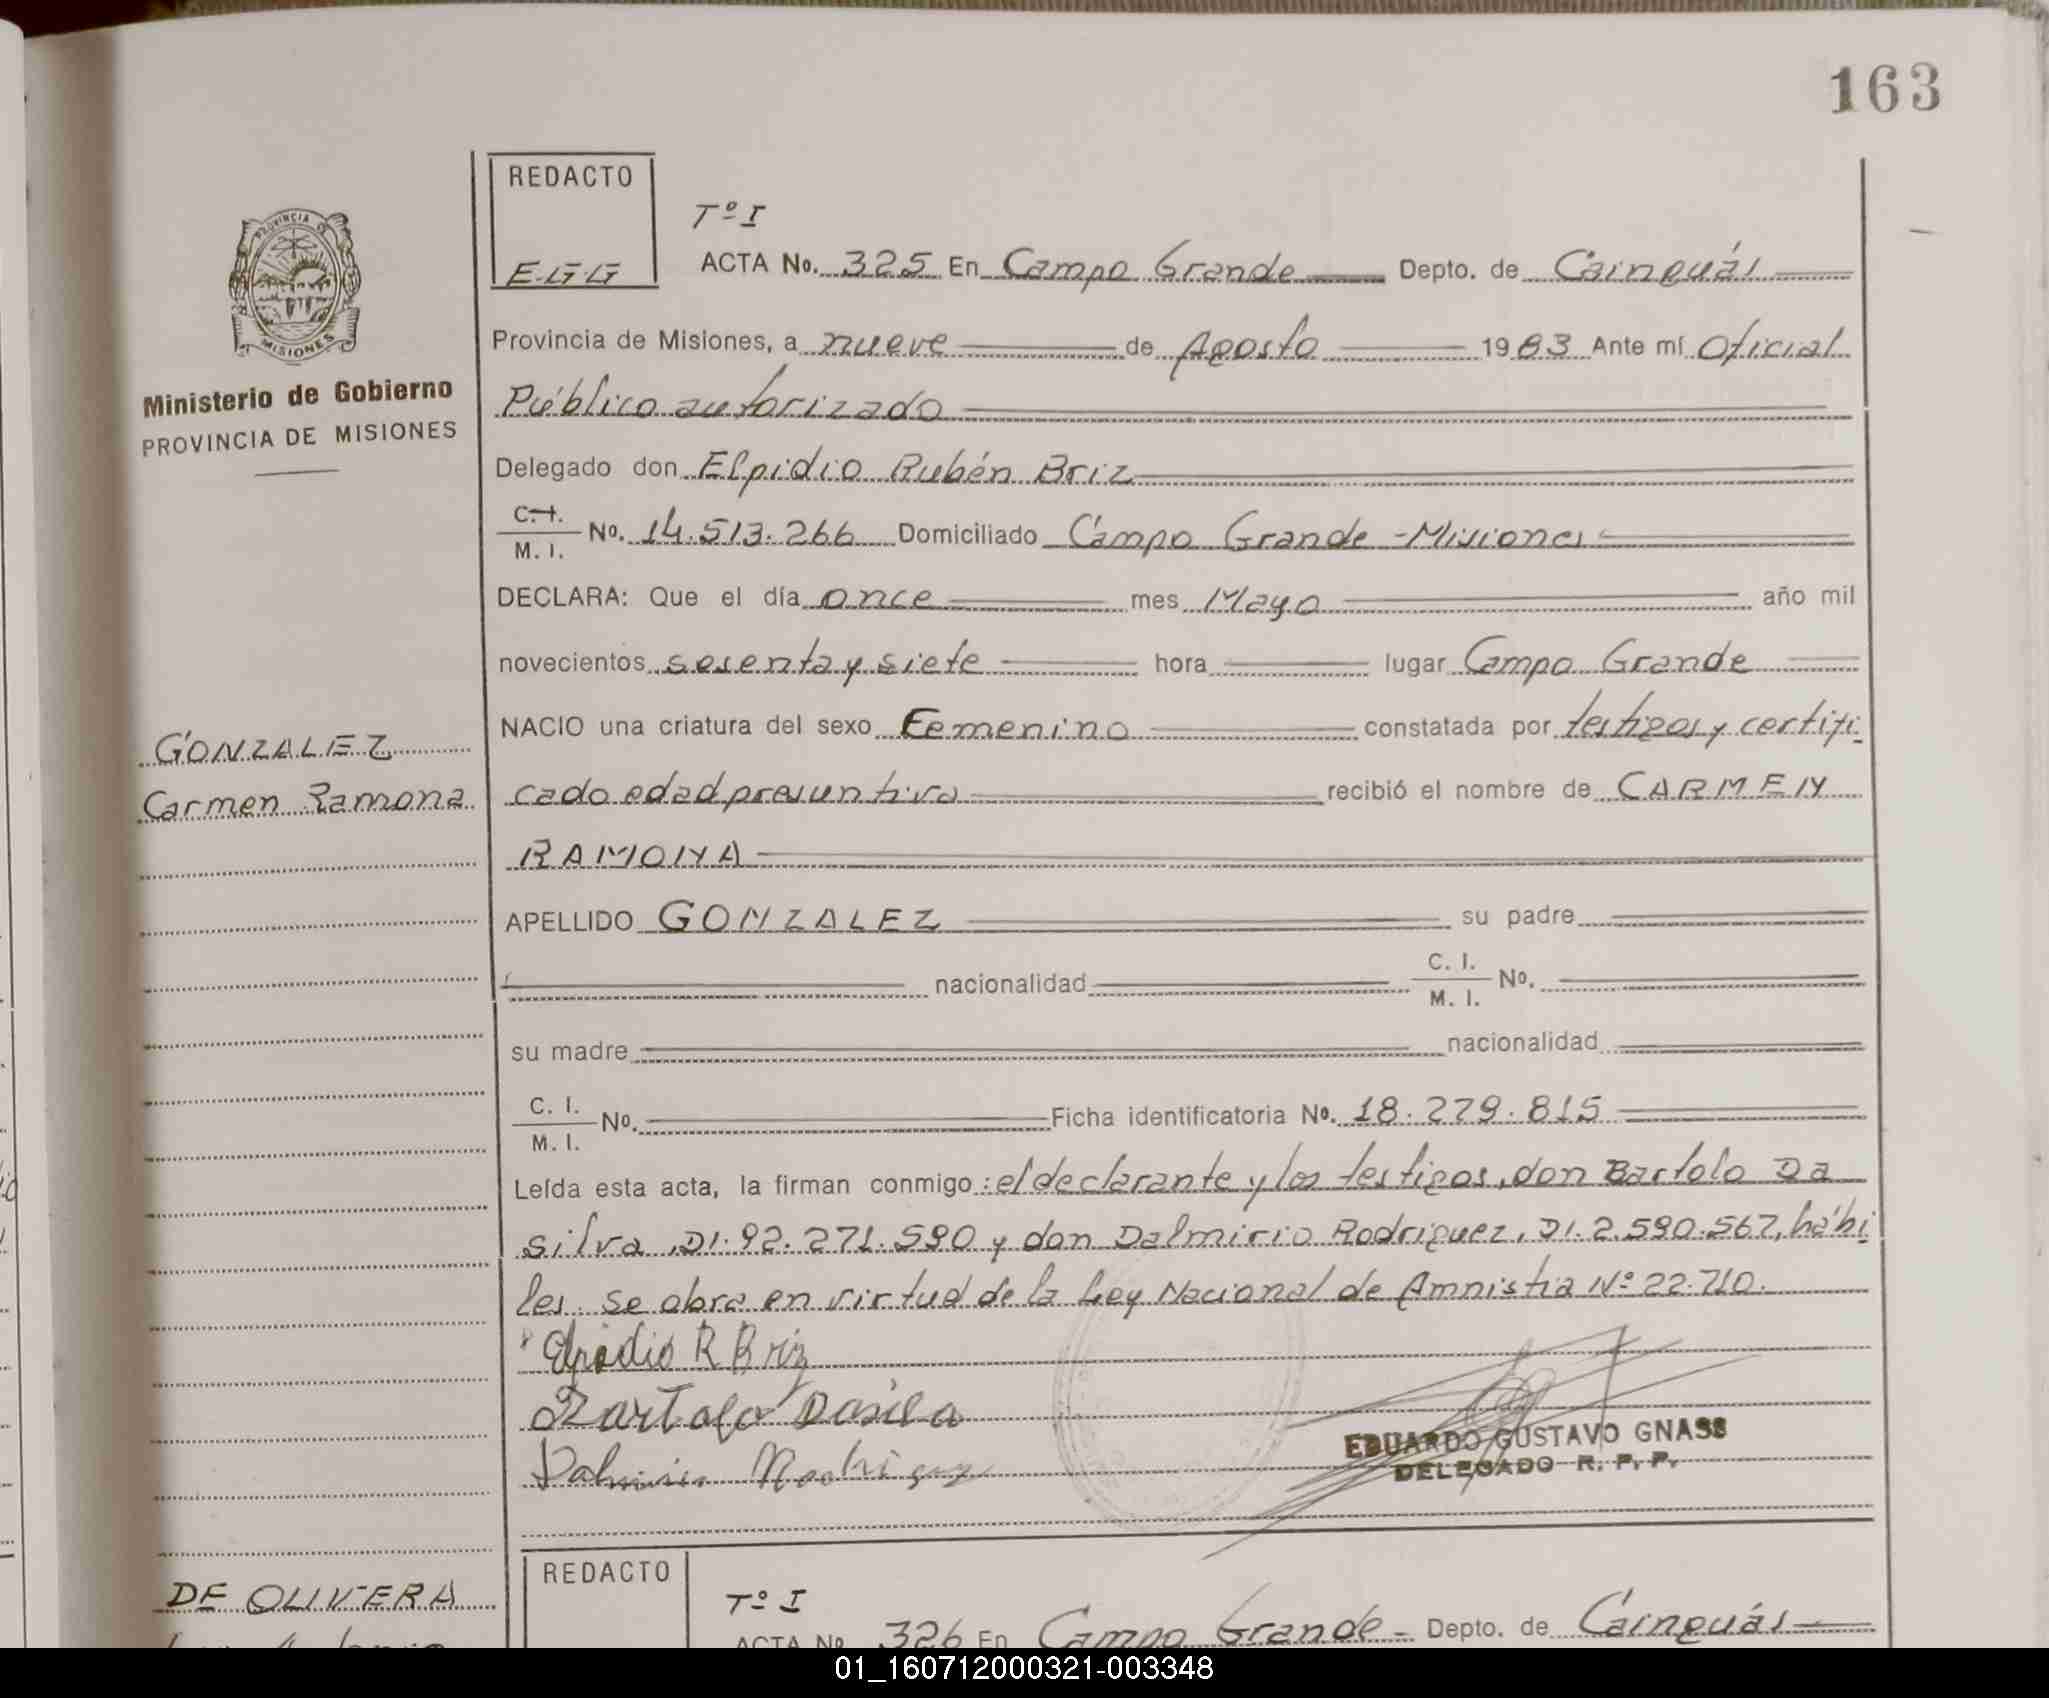 163
REDACTO
E.G.G
Tº I
ACTA No. 325 En Campo Grande Depto. de Cainguás
Provincia de Misiones, a nueve de Agosto 1983 Ante mí Oficial
Público autorizado
Delegado don Elpidio Rubén Briz
C.I. M. I. No. 14.513.266 Domiciliado Campo Grande - Misiones
DECLARA: Que el día once mes Mayo año mil
novecientos sesenta y siete hora lugar Campo Grande
NACIO una criatura del sexo Femenino constatada por testigos y certifi
cado edad presuntiva recibió el nombre de CARMEN
RAMONA
APELLIDO GONZALEZ su padre
nacionalidad C. I. M. I. No.
su madre nacionalidad
C. I. M. I. No. Ficha identificatoria No. 18.279.815
Leída esta acta, la firman conmigo: el declarante y los testigos, don Bartolo Da
silva, DI. 92.271.590 y don Dalmirio Rodriguez, DI. 2.590.567, hábi
les. Se obra en virtud de la Ley Nacional de Amnistia Nº 22.710.
Elpidio R Briz
Bartolo Dasilva
Dalmirio Rodriguez
EDUARDO GUSTAVO GNASS
DELEGADO R. P. P.
PROVINCIA DE
MISIONES
Ministerio de Gobierno
PROVINCIA DE MISIONES
GONZALEZ
Carmen Ramona
DE OLIVERA
REDACTO
Tº I
ACTA No. 326 En Campo Grande Depto. de Cainguás
01_160712000321-003348